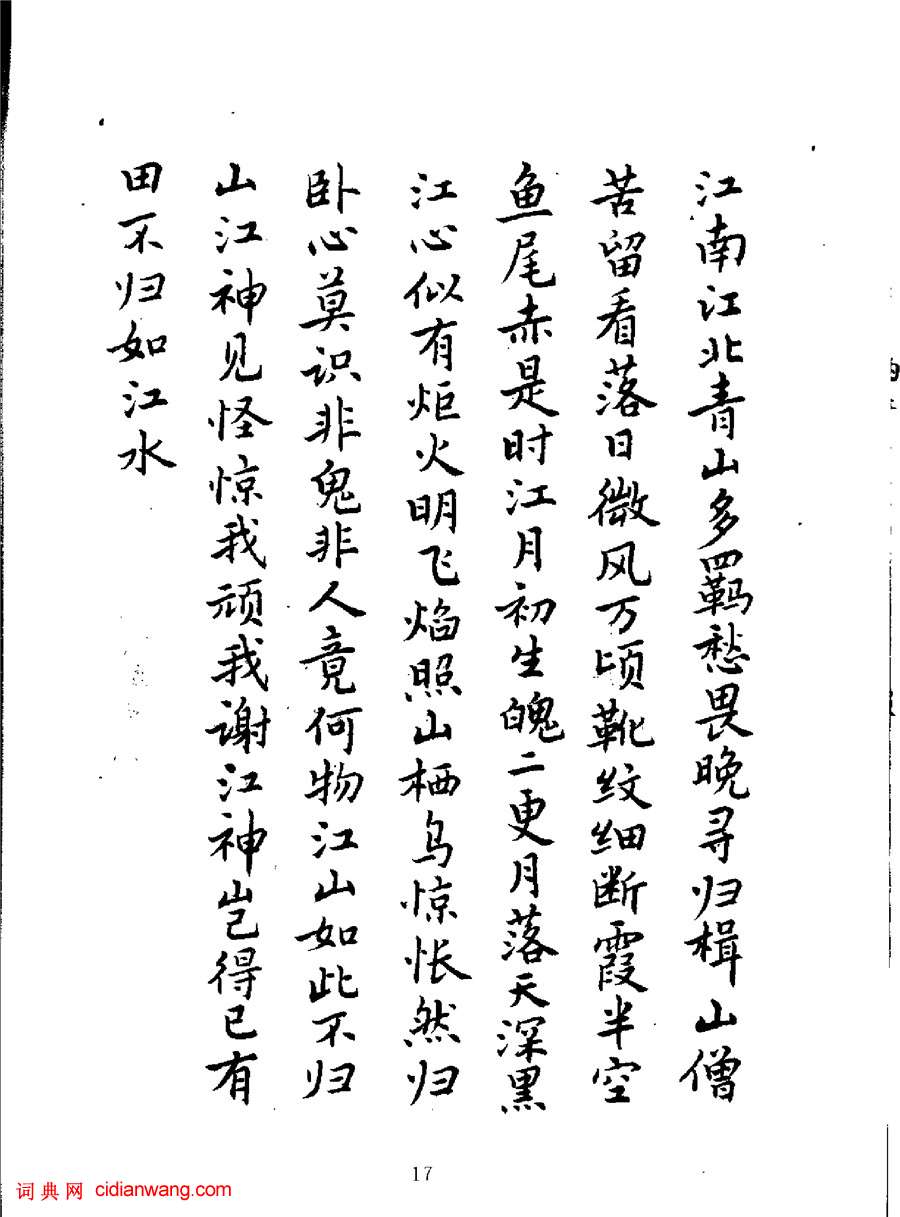 江南江北青山多羁愁畏晚寻归楫山僧
苦留看落日微风万顷靴纹细断霞半空
鱼尾赤是时江月初生魄二更月落天深黑
江心似有炬火明飞焰照山栖乌惊怅然归
卧心莫识非鬼非人竟何物江山如此不归
山江神见怪惊我顽我谢江神岂得已有
田不归如江水
17
词典网 cidianwang.com